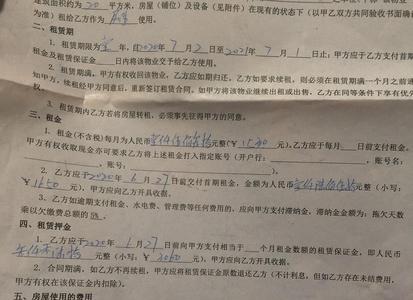 建筑面积约为 20 平方米,房屋(铺位)及设备(见附件)在现有的状态下(以甲乙双方共同验收书面确
为准)租给乙方作为 居住 使用。
二、租赁期
1. 租赁期限为 壹 年,由 2020 年 7 月 2 日至 2021 年 7 月 1 日止;甲方应于乙方支付首
租金及租赁保证金 日内将该物业交予给乙方使用。
2. 租赁期满,甲方有权收回该物业,乙方应如期归还,乙方如要求续租,则必须在租赁期满一个月之前通
知甲方,续租经甲方同意后,重新签订租赁合同。如甲方将该物业继续出租或出售,乙方在同等条件下享有优
权。
3. 租赁期内乙方若将房屋转租,必须事先征得甲方的同意。
三、租金
1. 租金(不含税)每月为人民币 元整(¥ 元)。乙方应于每月 日前支付租金。
甲方有权收取现金亦可要求乙方将上述租金打入指定账号(开户行: ,账号名:
,账号: )。
2. 乙方应于 2020 年 6 月 27 日前交付首期租金,金额为人民币 元整(小写:
¥ 1650 元),甲方应向乙方开具收据。
3. 乙方如逾期支付租金、水电费、管理费等任何费用的,应向甲方支付滞纳金,滞纳金金额为:拖欠天数
乘以欠缴费总额的 5%。
四、租赁押金
1. 乙方应于 2020 年 6 月 27 日前向甲方支付相当于 个月租金数额的租赁保证金,即人民
币 元整(小写:¥ 3060 元),甲方应向乙方开具收据。
2. 合同期满,如乙方不再续租,甲方应将租赁保证金原数退还乙方(不计利息,但如乙方存在未结费用,
甲方有权在该保证金内扣除)。
五、房屋使用的费用